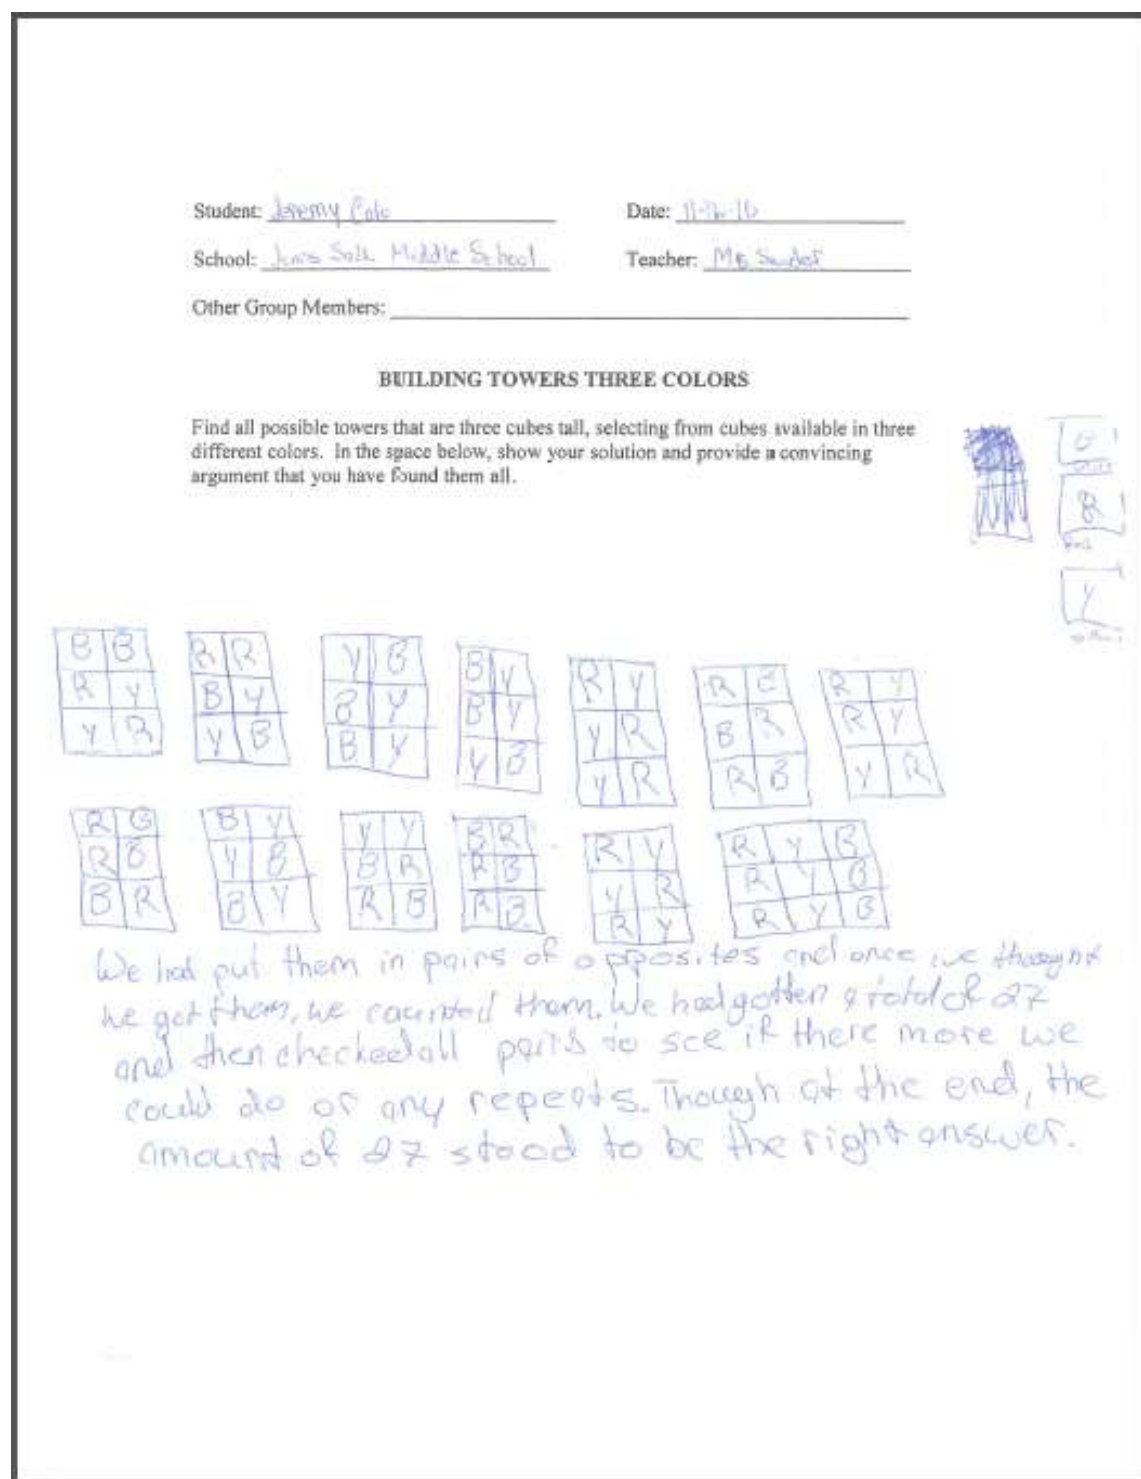 Student: Jeremy Cole Date: 11-16-10
School: Jonas Salk Middle School Teacher: 
Other Group Members:
BUILDING TOWERS THREE COLORS
Find all possible towers that are three cubes tall, selecting from cubes available in three
different colors. In the space below, show your solution and provide a convincing
argument that you have found them all.
B
R
Y
B B R R Y B B Y R Y R B R Y
R Y B Y B Y B Y Y R B R R Y
Y R Y B B Y Y B Y R R B Y R
R B B Y Y Y B R R Y R Y B
R B Y B B R R B Y R R Y B
B R B Y R B R B R Y R Y B
We had put them in pairs of opposites and once we thought
we got them, we counted them. We had gotten a total of 27
and then checked all pairs to see if there more we
could do or any repeats. Though at the end, the
amount of 27 stood to be the right answer.